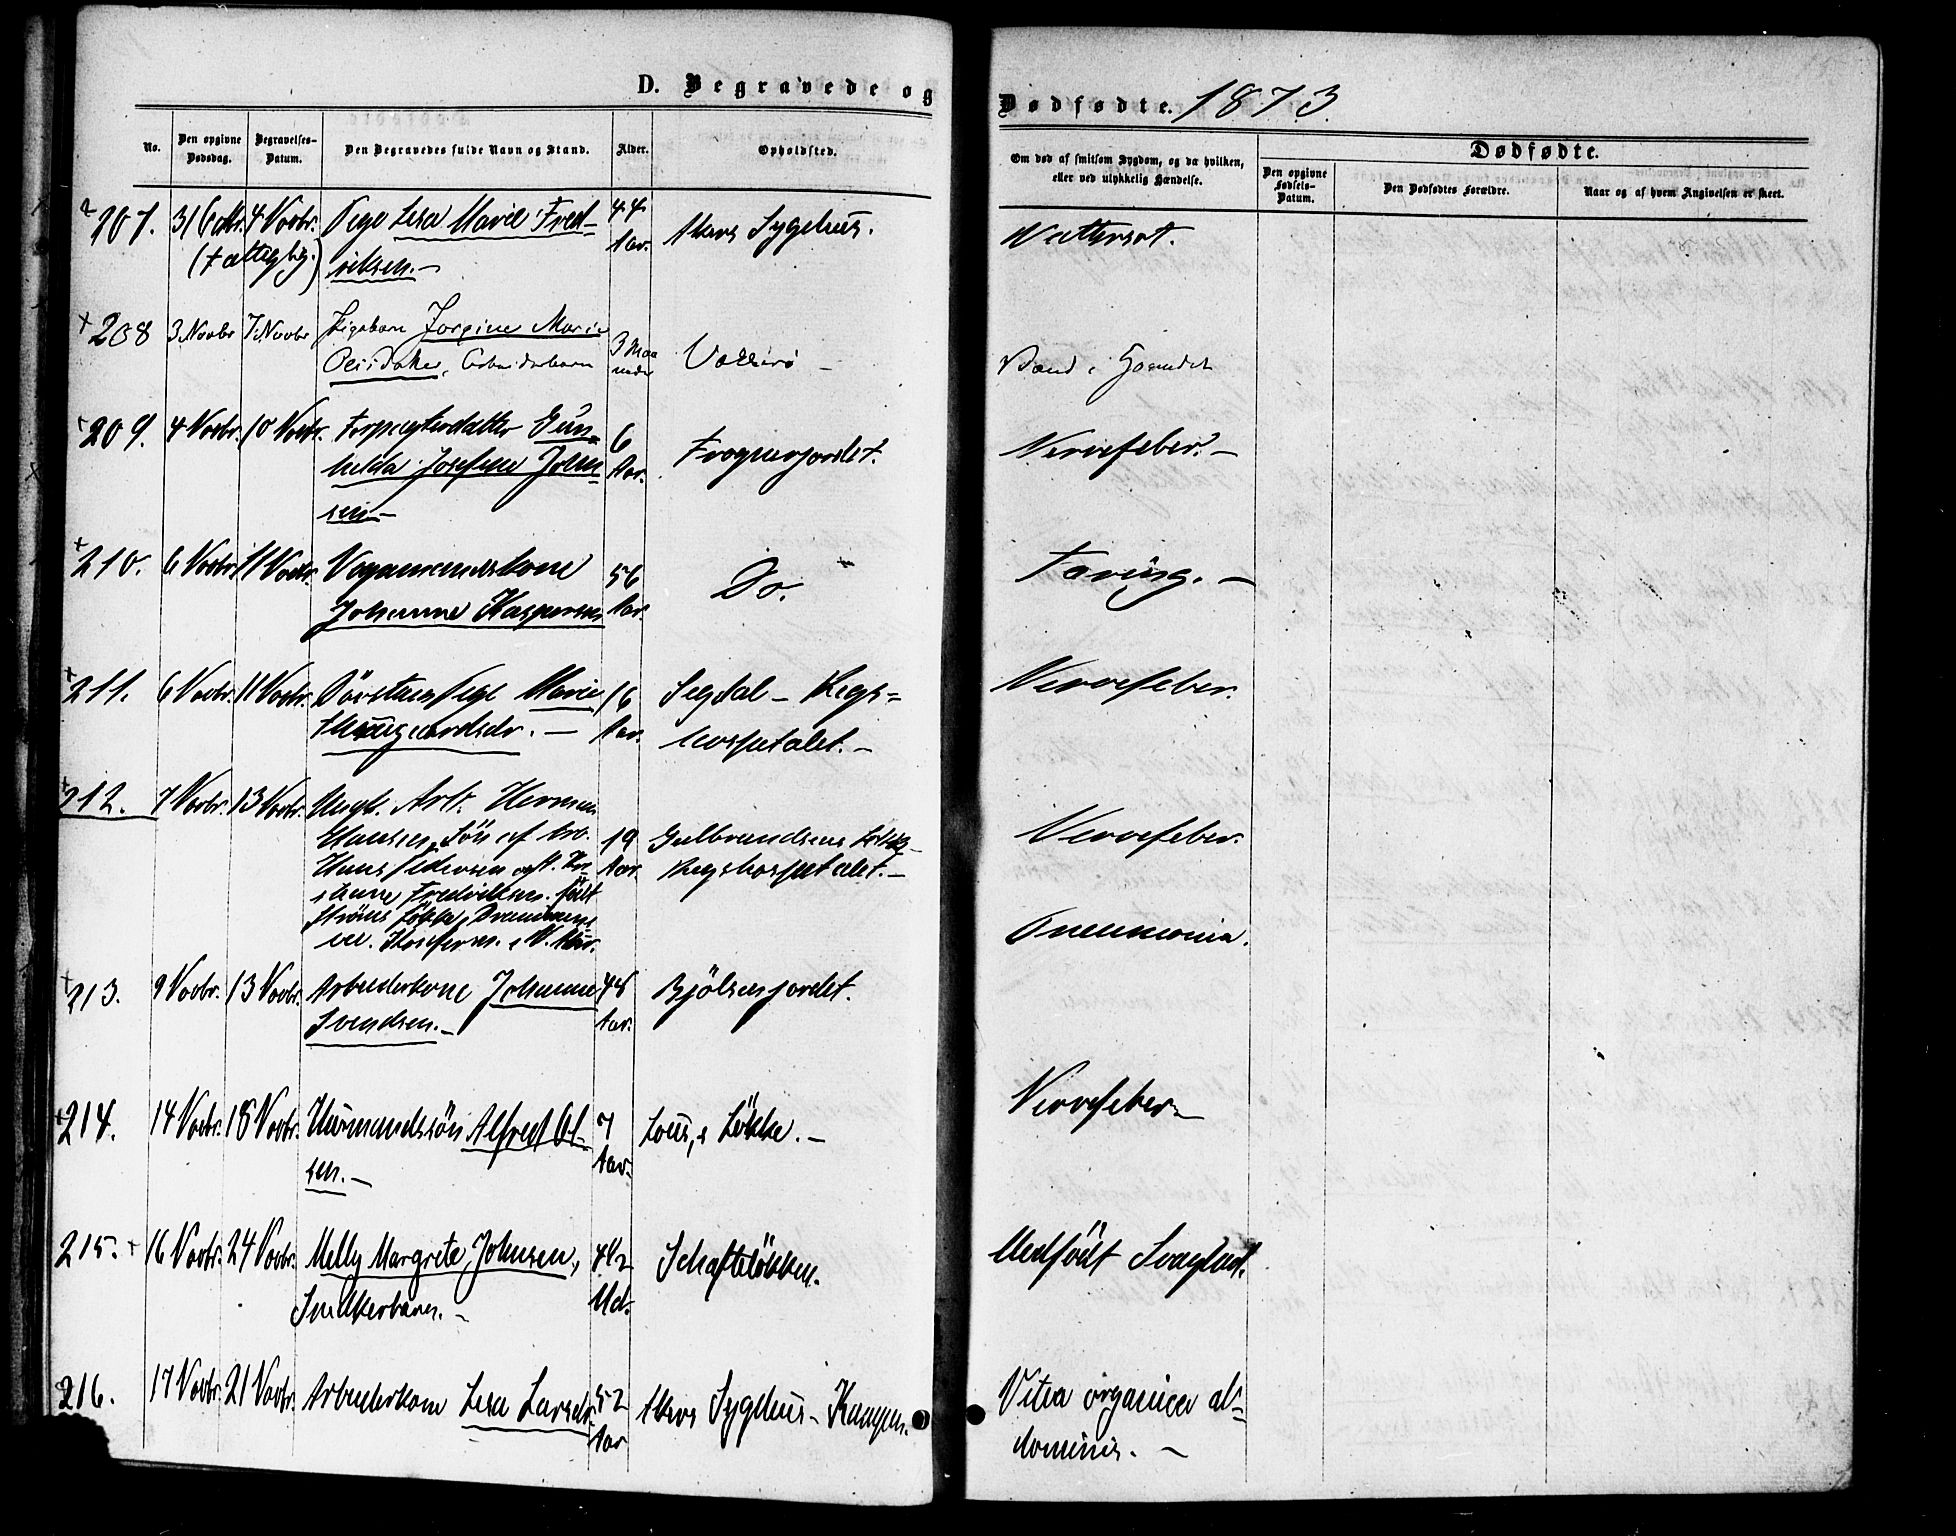 D. Begravede og
Dødfødte. 1873.
No.
Den opgivne Dødsdag.
Begravelses-Datum.
Den Begravedes fulde Navn og Stand.
Alder.
Opholdsted.
Om død af smitsom Sygdom, og da hvilken,
eller ved ulykkelig Hændelse.
Dødfødte.
Den opgivne Fødsels-Datum.
Den Dødfødtes Forældre.
Naar og af hvem Angivelsen er skeet.
207. 31 Octbr. 4 Novbr. Pige Lisa Marie Fred- 44 Akers Sygehus.
(Fattigbg.) riksen. Aar.
208 3 Novbr 7 Novbr Pigebarn Jorgine Marie 3 Maa
Arbeiderbarn neder
Vand i Hovedet
209. 4 Novbr. 10 Novbr. Forpagterdatter Gun- 6 Frognerjordet. Nervefeber.
hilda Josefine John- Aar.
sen
210. 6 Novbr. 11 Novbr. Vognmandskone 56 Do. Tæring.
Johanne Kaspersen Aar.
211. 6 Novbr. 11 Novbr. Pige Marie 16 Sigdal - Rigs= Nervefeber.
Aar. hospitalet.
212. 7 Novbr. 13 Novbr. Ungk. Arb. Herman
Hansen, Sön af Arb. 19 Gulbrandsens Nervefeber.
Hans Pedersen og Aar. Rigshospitalet.
Fredriksen. födt
Løkke, Drammens-
Pneumonia.
213. 9 Novbr. 13 Novbr. Arbeiderkone Johanne 48 Bjölsenjordet.
Svendsen. Aar.
214. 14 Novbr. 18 Novbr. Huusmandssön Alfred Ol- 7 Løkke. Nervefeber
sen. Aar.
215. 16 Novbr. 24 Novbr. Melly Margrete Johnsen, 4 1/2 Schafteløkken. Medfødt Svaghed.
Snedkerbarn. Md.
216. 17 Novbr. 21 Novbr. Arbeiderkone Lisa Larsdr. 52 Akers Sygehus - Kampen. Vitia organica ab=
Aar dominis.